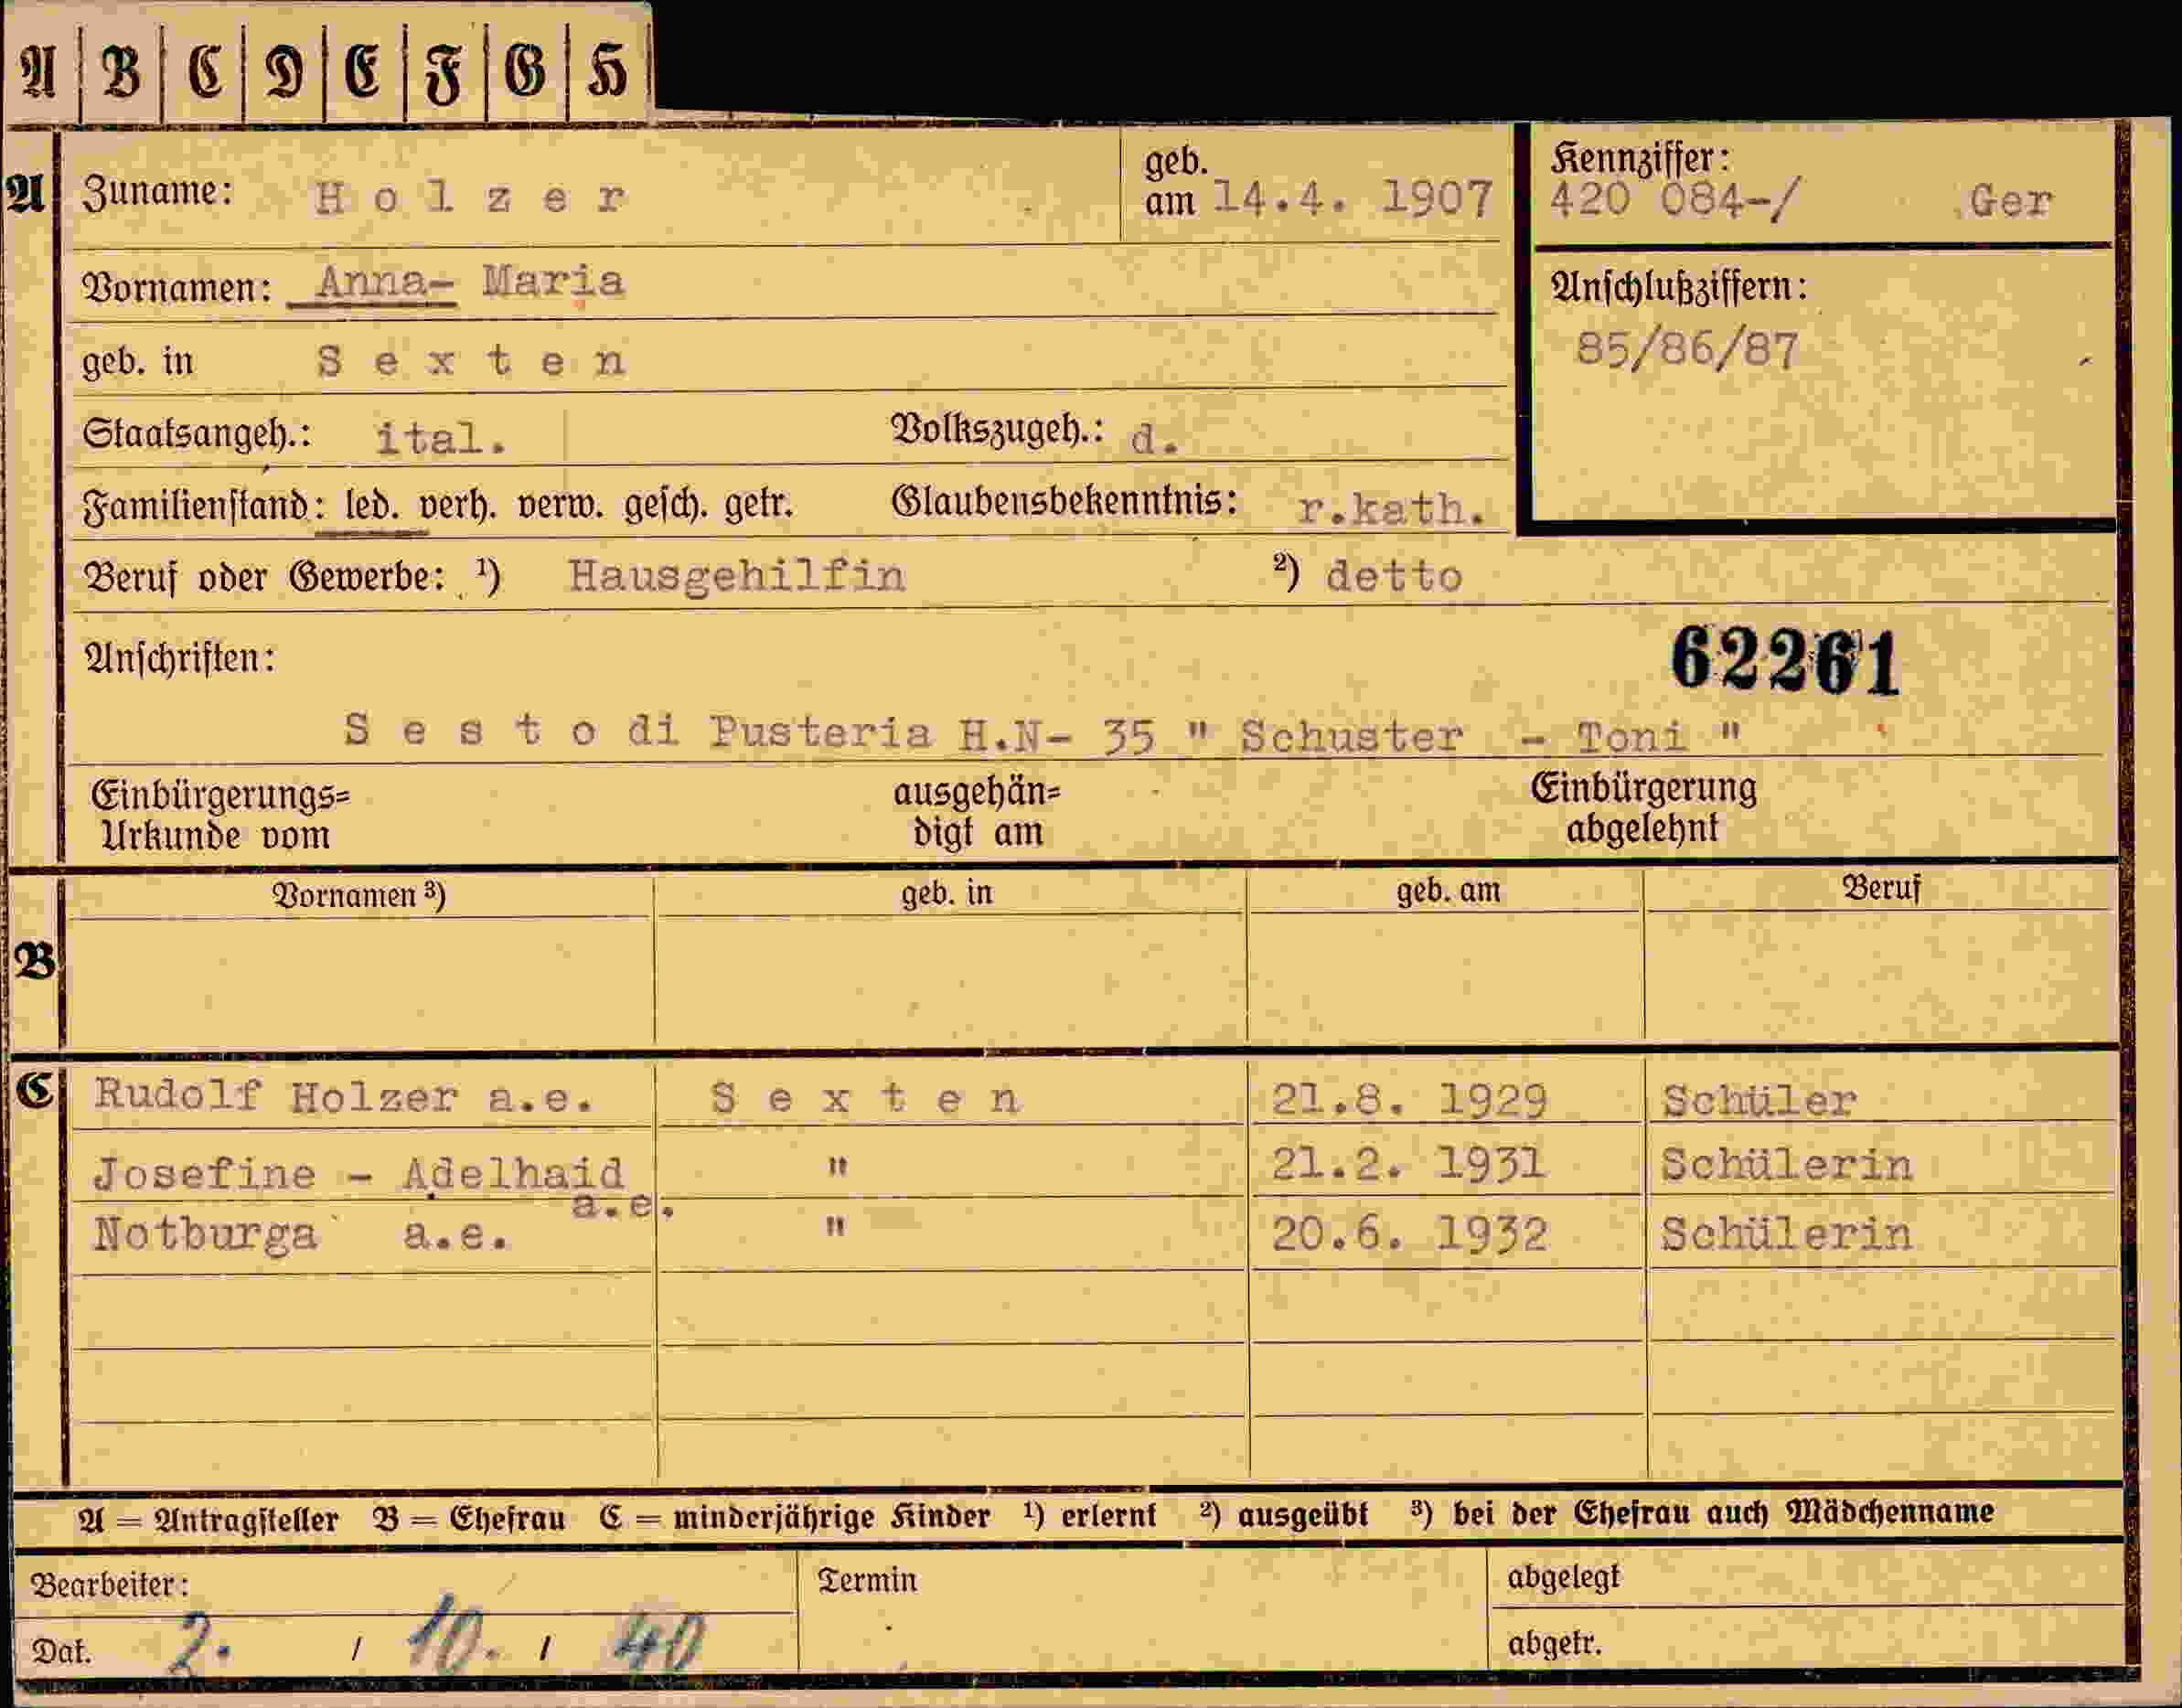 A B C D E F G H
A Zuname: Holzer geb. am 14.4. 1907 Kennziffer: 420 084-/ Ger
Vornamen: Anna- Maria Anschlußziffern:
geb. in Sexten 85/86/87
Staatsangeh.: ital. Volkszugeh.: d.
Familienstand: led. verh. verw. gesch. getr. Glaubensbekenntnis: r.kath.
Beruf oder Gewerbe: ¹) Hausgehilfin ²) detto
Anschriften: 62261
Sesto di Pusteria H.N- 35 " Schuster - Toni "
Einbürgerungs= ausgehän= Einbürgerung
Urkunde vom digt am abgelehnt
Vornamen ³) geb. in geb. am Beruf
B
C Rudolf Holzer a.e. Sexten 21.8. 1929 Schüler
Josefine - Adelhaid " 21.2. 1931 Schülerin
a.e.
Notburga a.e. " 20.6. 1932 Schülerin
A = Antragsteller B = Ehefrau C = minderjährige Kinder ¹) erlernt ²) ausgeübt ³) bei der Ehefrau auch Mädchenname
Bearbeiter: Termin abgelegt
Dat. 2. / 10. / 40 abgetr.